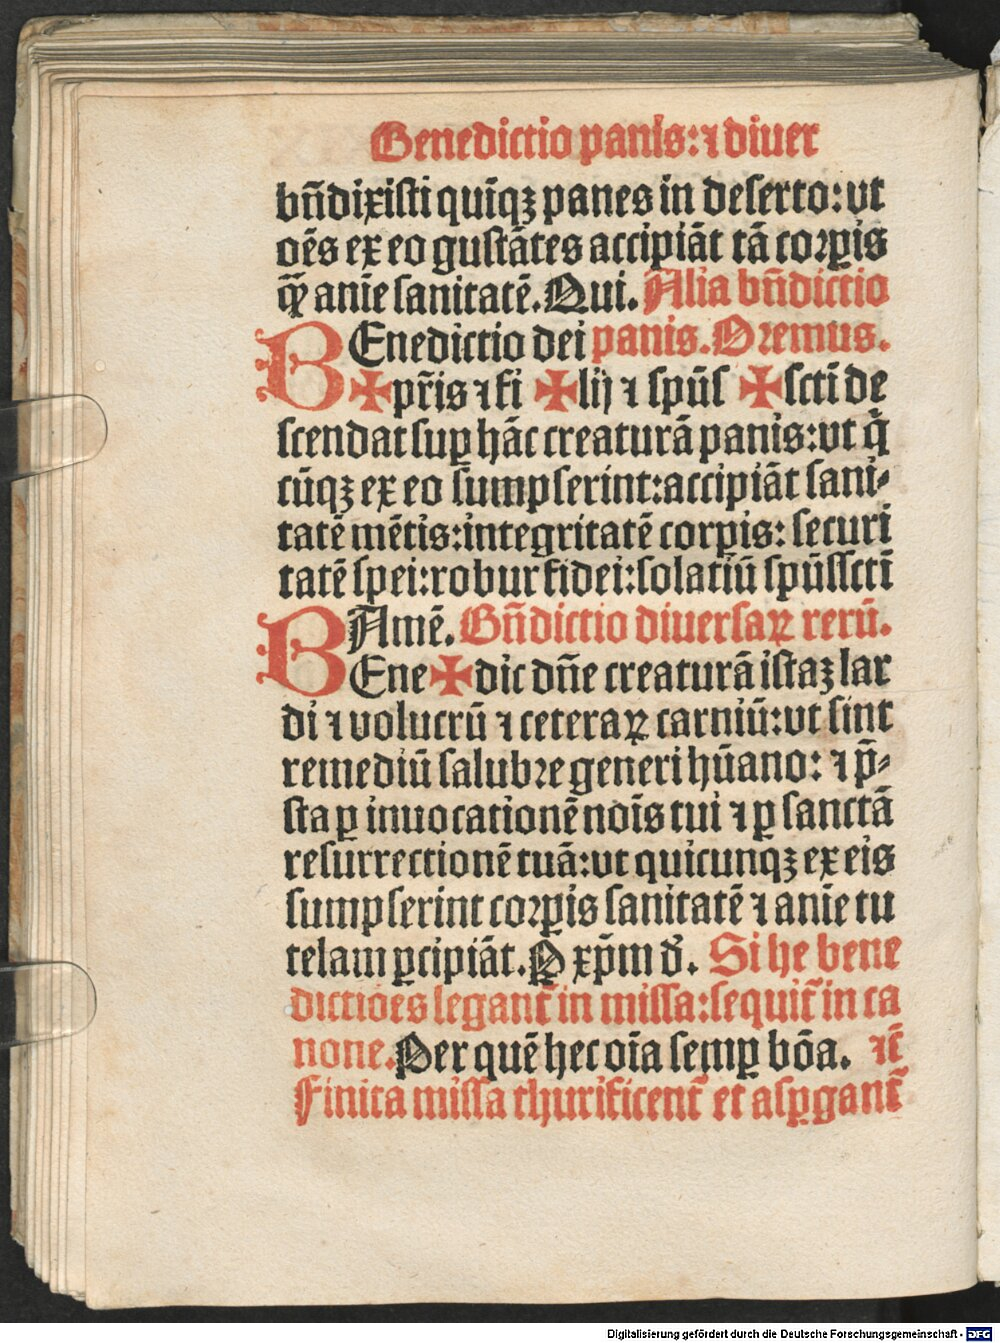 Benedictio panis: ⁊ diuer
bñdixisti quīqꝫ panes in deserto: vt
oēs ex eo gustātes accipiāt tā coꝛꝑis
qꝫ̄ anīe sanitatē. Qui. Alia bñdictio
BEnedictio dei panis. Oꝛemus.
✠ pr̄is ⁊ fi ✠ lij ⁊ spūs ✠ sctī de
scendat suꝑ hāc creaturā panis: vt q̄
cūqꝫ ex eo sumpserint: accipiāt sani⸗
tatē mētis: integritatē corꝑis: securi
tatē spei: robur fidei: solatiū spūssctī
Amē. Bñdictio diuersaꝝ rerū.
BEne ✠ dic dñe creaturā istaꝫ lar
di ⁊ volucrū ⁊ ceteraꝝ carniū: vt sint
remediū salubꝛe generi hūano: ⁊ p̄⸗
sta ꝑ inuocationē noīs tui ⁊ ꝑ sanctā
resurrectionē tuā: vt quicunqꝫ ex eis
sumpserint coꝛꝑis sanitatē ⁊ anīe tu
telam ꝑcipiāt. P xp̄m d̄. Si he bene
dictiōes legant̄ in missa: sequit̄ in ca
none. Per quē hec oīa semꝑ bōa. ⁊c̄
Finita missa thurificent̄ et asꝑgant̄
Digitalisierung gefördert durch die Deutsche Forschungsgemeinschaft - DFG